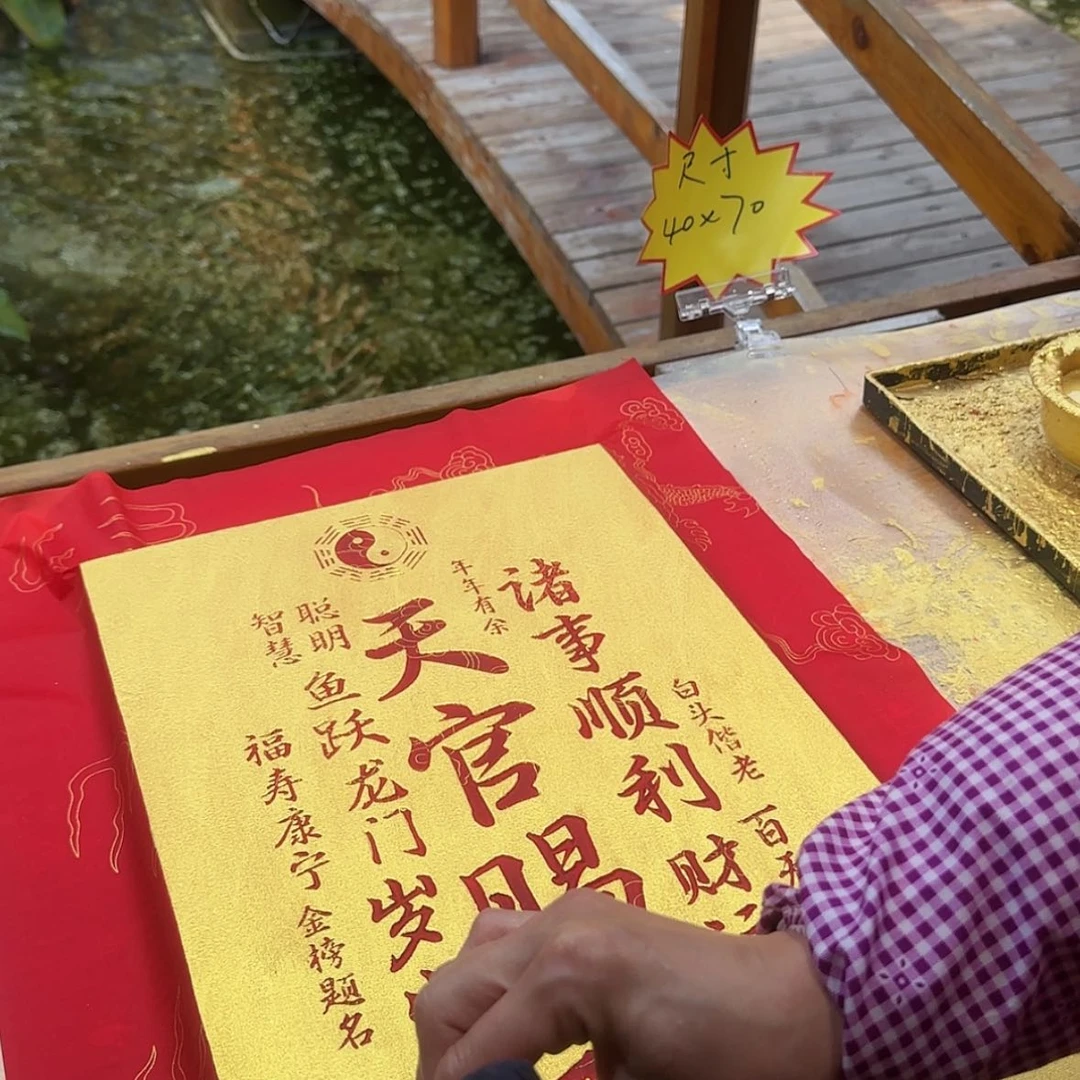 尺寸
40x70
诸事顺利
财
白头偕老
百
年年有余
天官赐
聪明
智慧
鱼跃龙门
岁
福寿康宁
金榜题名